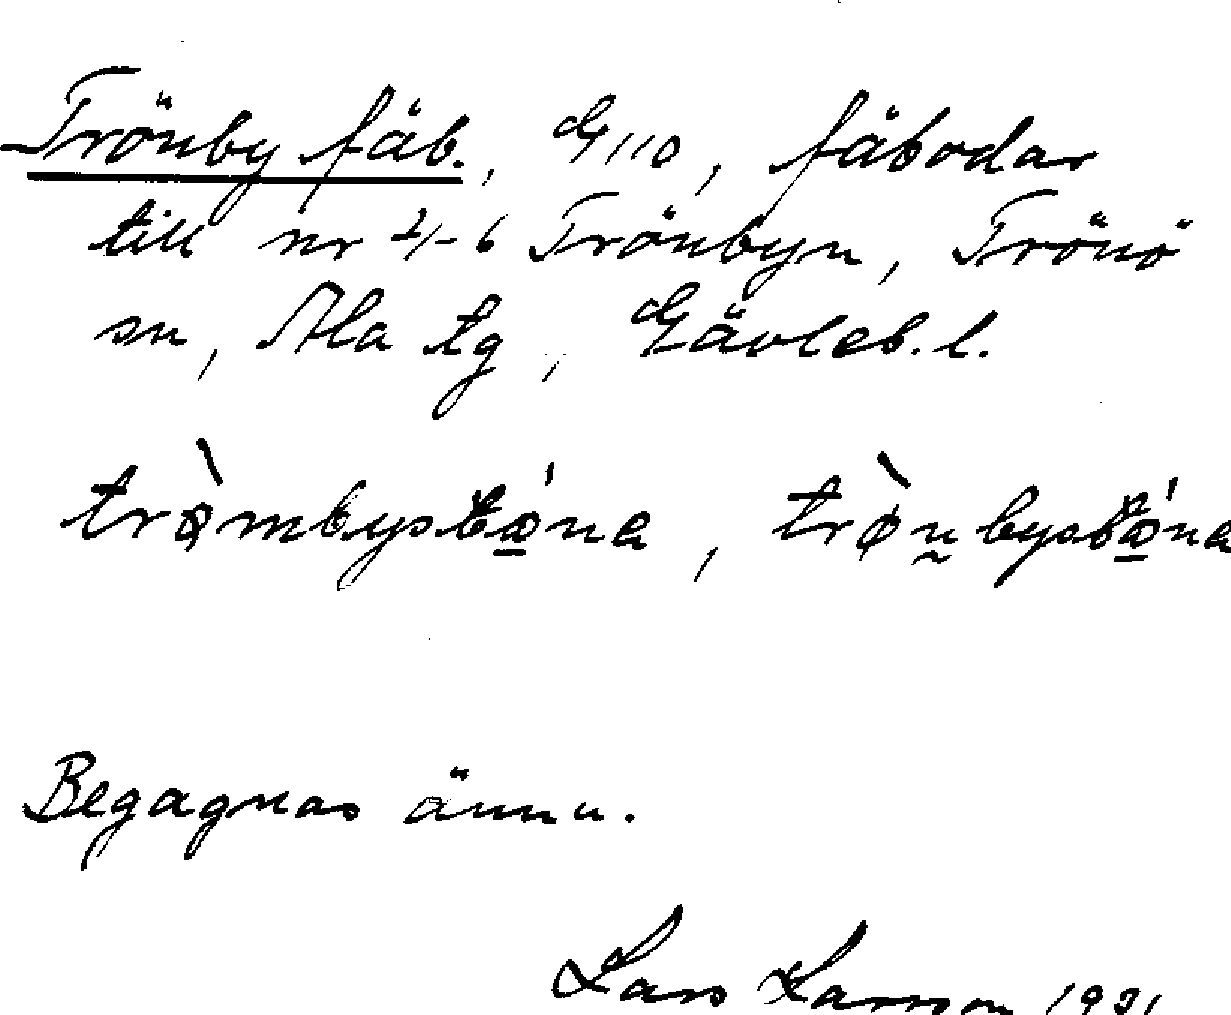 Trönby fäb., G 110, fäbodar
till nr 4-6 Trönbyn, Trönö
sn, Ala tg, Gävleb. l.
trø̀mbystǿ̠na, trø̀n̰bystǿ̠na
Begagnas ännu.
Lars Larsson 1931